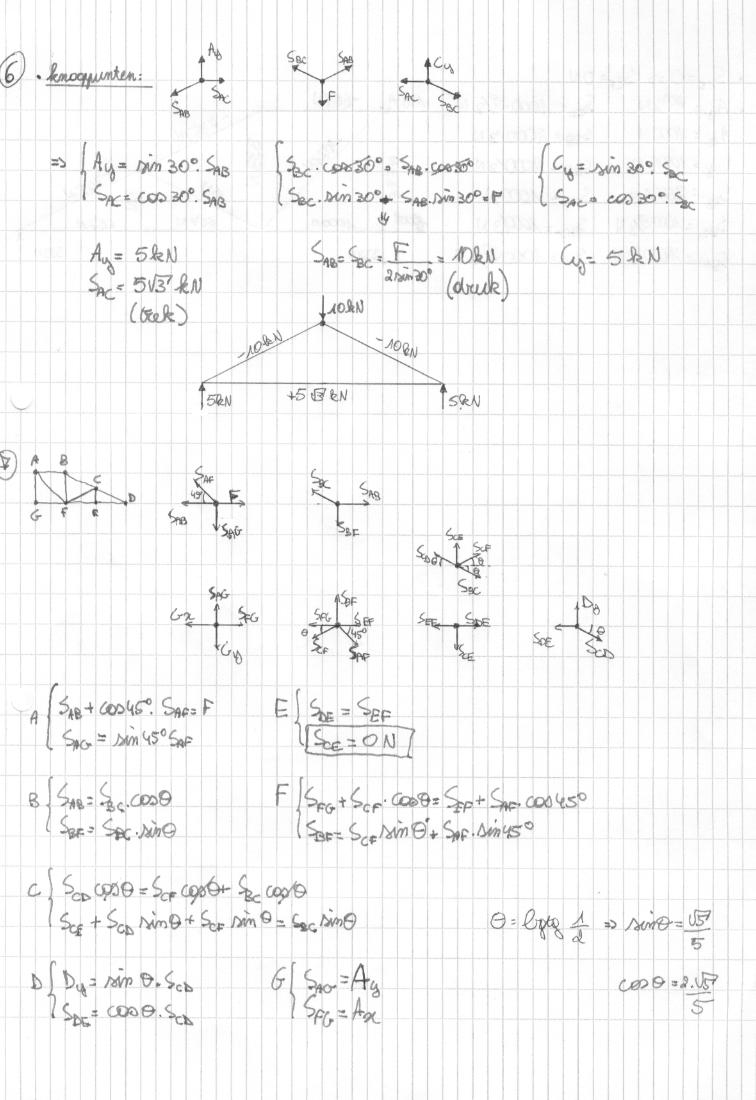 6 • knooppunten:
A_y S_AC S_AB
S_BC S_AB F
C_y S_AC S_BC
=> { A_y = sin 30°. S_AB
S_AC = cos 30°. S_AB
{ S_BC . cos 30° = S_AB . cos 30°
S_BC . sin 30° + S_AB . sin 30° = F
{ C_y = sin 30°. S_BC
S_AC = cos 30°. S_BC
A_y = 5 kN
S_AC = 5√3 kN
(trek)
S_AB = S_BC = F / 2 sin 30° = 10 kN
(druk)
C_y = 5 kN
10 kN
-10 kN -10 kN
5 kN +5√3 kN 5 kN
7
A B C D
G F E
S_AF 45° F S_AB S_AG
S_BC S_AB S_BF
S_CE S_CF S_CD θ θ θ S_BC
S_AG Gx S_FG Gy
S_BF S_FG S_EF θ 45° S_CF S_AF
S_EF S_DE S_CE
D_y S_DE θ S_CD
A { S_AB + cos 45°. S_AF = F
S_AG = sin 45° S_AF
E { S_DE = S_EF
S_CE = 0 N
B { S_AB = S_BC . cos θ
S_BF = S_BC . sin θ
F { S_FG + S_CF . cos θ = S_EF + S_AF . cos 45°
S_BF = S_CF sin θ + S_AF . sin 45°
C { S_CD cos θ = S_CF cos θ + S_BC cos θ
S_CE + S_CD sin θ + S_CF sin θ = S_BC sin θ
θ = bgtg 1/2 => sin θ = √5/5
D { D_y = sin θ . S_CD
S_DE = cos θ . S_CD
G { S_AG = A_y
S_FG = A_x
cos θ = 2.√5/5